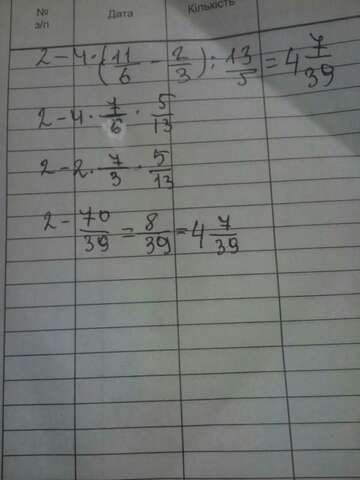 № з/п Дата Кількість
2-4·(11/6 - 2/3) : 13/5 = 4 7/39
2-4·7/6·5/13
2-2·7/3·5/13
2-70/39=8/39=4 7/39